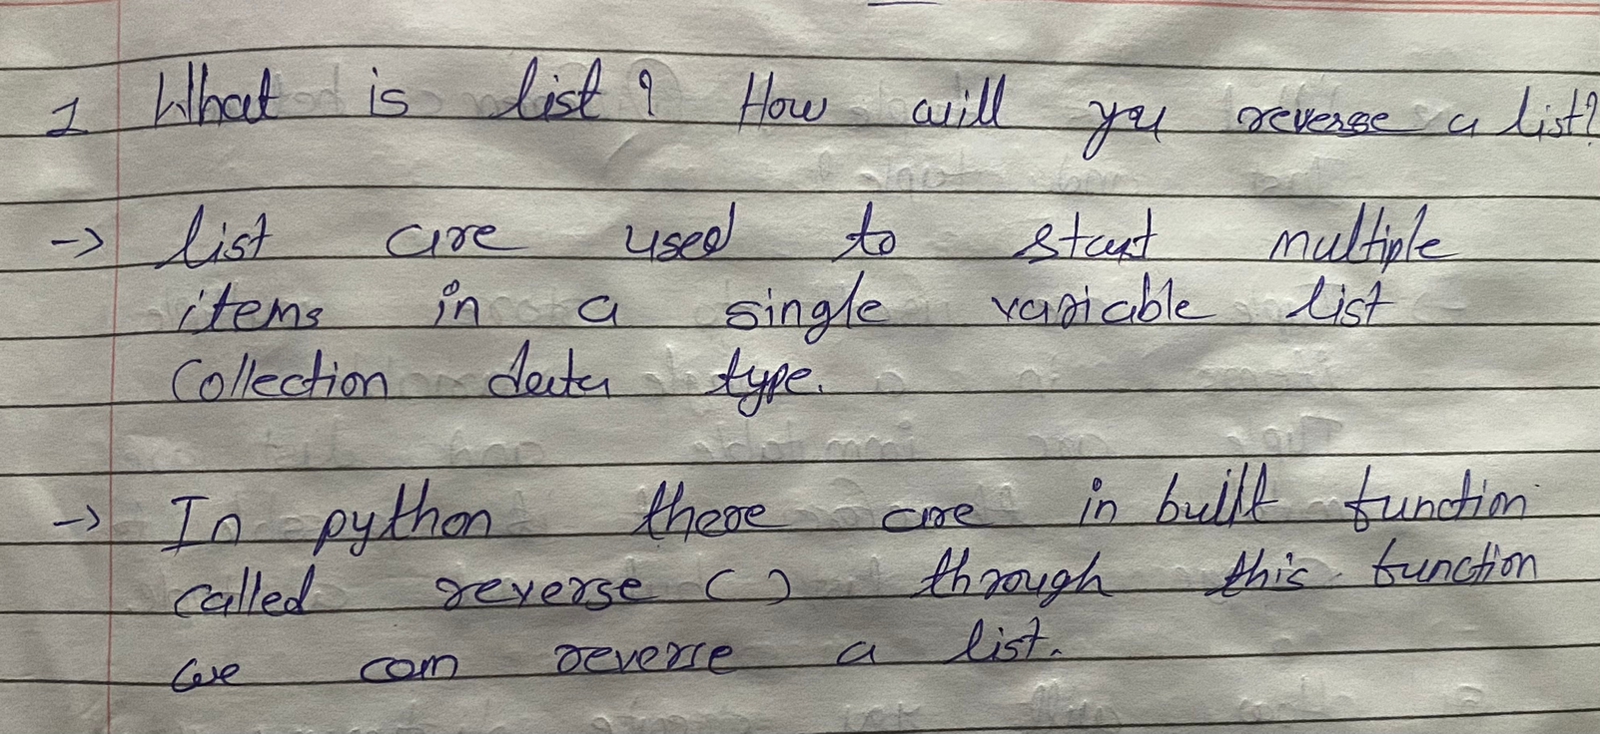 1 What is list? How will you reverse a list?
-> list are used to start multiple
items in a single variable list
Collection data type.
-> In python there are in built function
called reverse ( ) through this function
we can reverse a list.